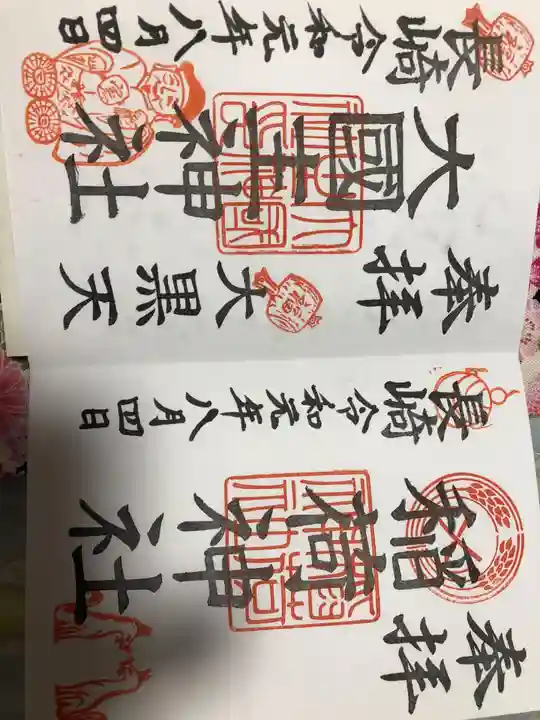 奉拝
稲荷神社
長崎 令和元年八月四日
奉拝 大黒天
大國主神社
長崎 令和元年八月四日